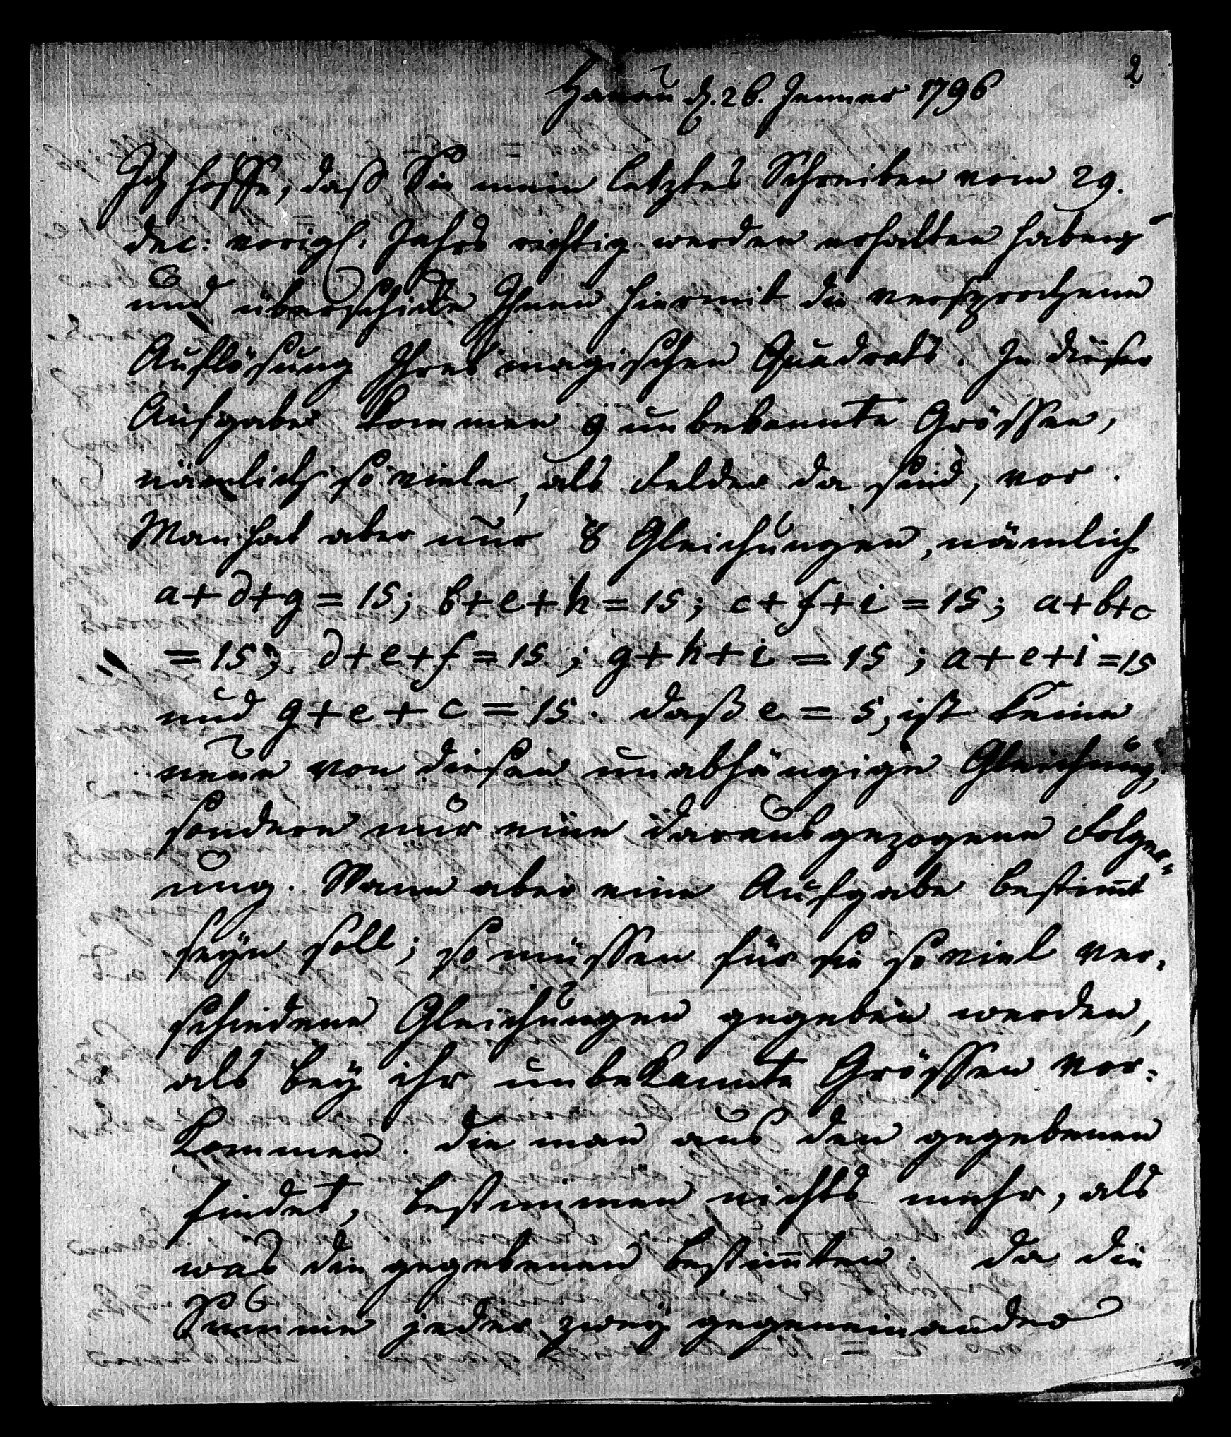 2
Hanau d. 26. Jenner 1796
Ich hoffe, daß Sie mein letztes Schreiben vom 29.
Dec: vorigs. Jahrs richtig werden erhalten haben,
und überschicke Ihnen hiermit die versprochene
Auflösung Ihres magischen Quadrats. In dieser
Aufgabe kommen 9 unbekannte Grössen,
nämlich so viele, als Felder da sind, vor.
Man hat aber nur 8 Gleichungen, nämlich
a+d+g=15; b+e+h=15; c+f+i=15; a+b+c
=15; d+e+f=15; g+h+i=15; a+e+i=15
und g+e+c=15. Daß e=5, ist keine
neue von diesen unabhängige Gleichung,
sondern nur eine daraus gezogene Folger-
ung. Wann aber eine Aufgabe bestimt
seyn soll; so müssen für sie so viel ver-
schiedene Gleichungen gegeben werden,
als bey ihr unbekannte Grössen vor-
kommen. Die man aus den gegebenen
findet, bestimmen nichts mehr, als
was die gegebenen bestimten. Da die
Summe jeder zwey gegeneinander